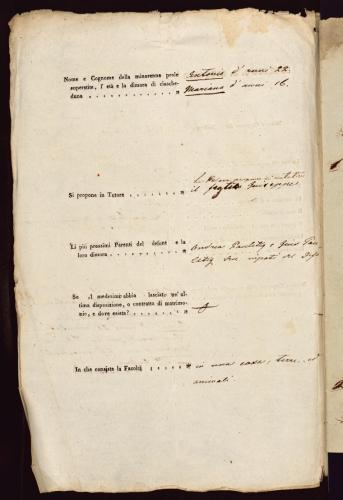 Nome e Cognome della minorenne prole
superstite, l' età e la dimora di ciasche-
duna . . . . . . . . . . . . .
Antonio d' anni 22.
Mariana d' anni 16.
Si propone in Tutore . . . . . . . .
il figlio Giuseppe.
Li più prossimi Parenti del defunt e la
loro dimora . . . . . . . . . . . .
Andrea
nipoti del
Se il medesimo abbia lasciato un' ul-
tima disposizione, o contratto di matrimo-
nio, e dove esista? . . . . . . . . .
In che consista la Facoltà . . . . . .
in una casa, terre, ed
animali.